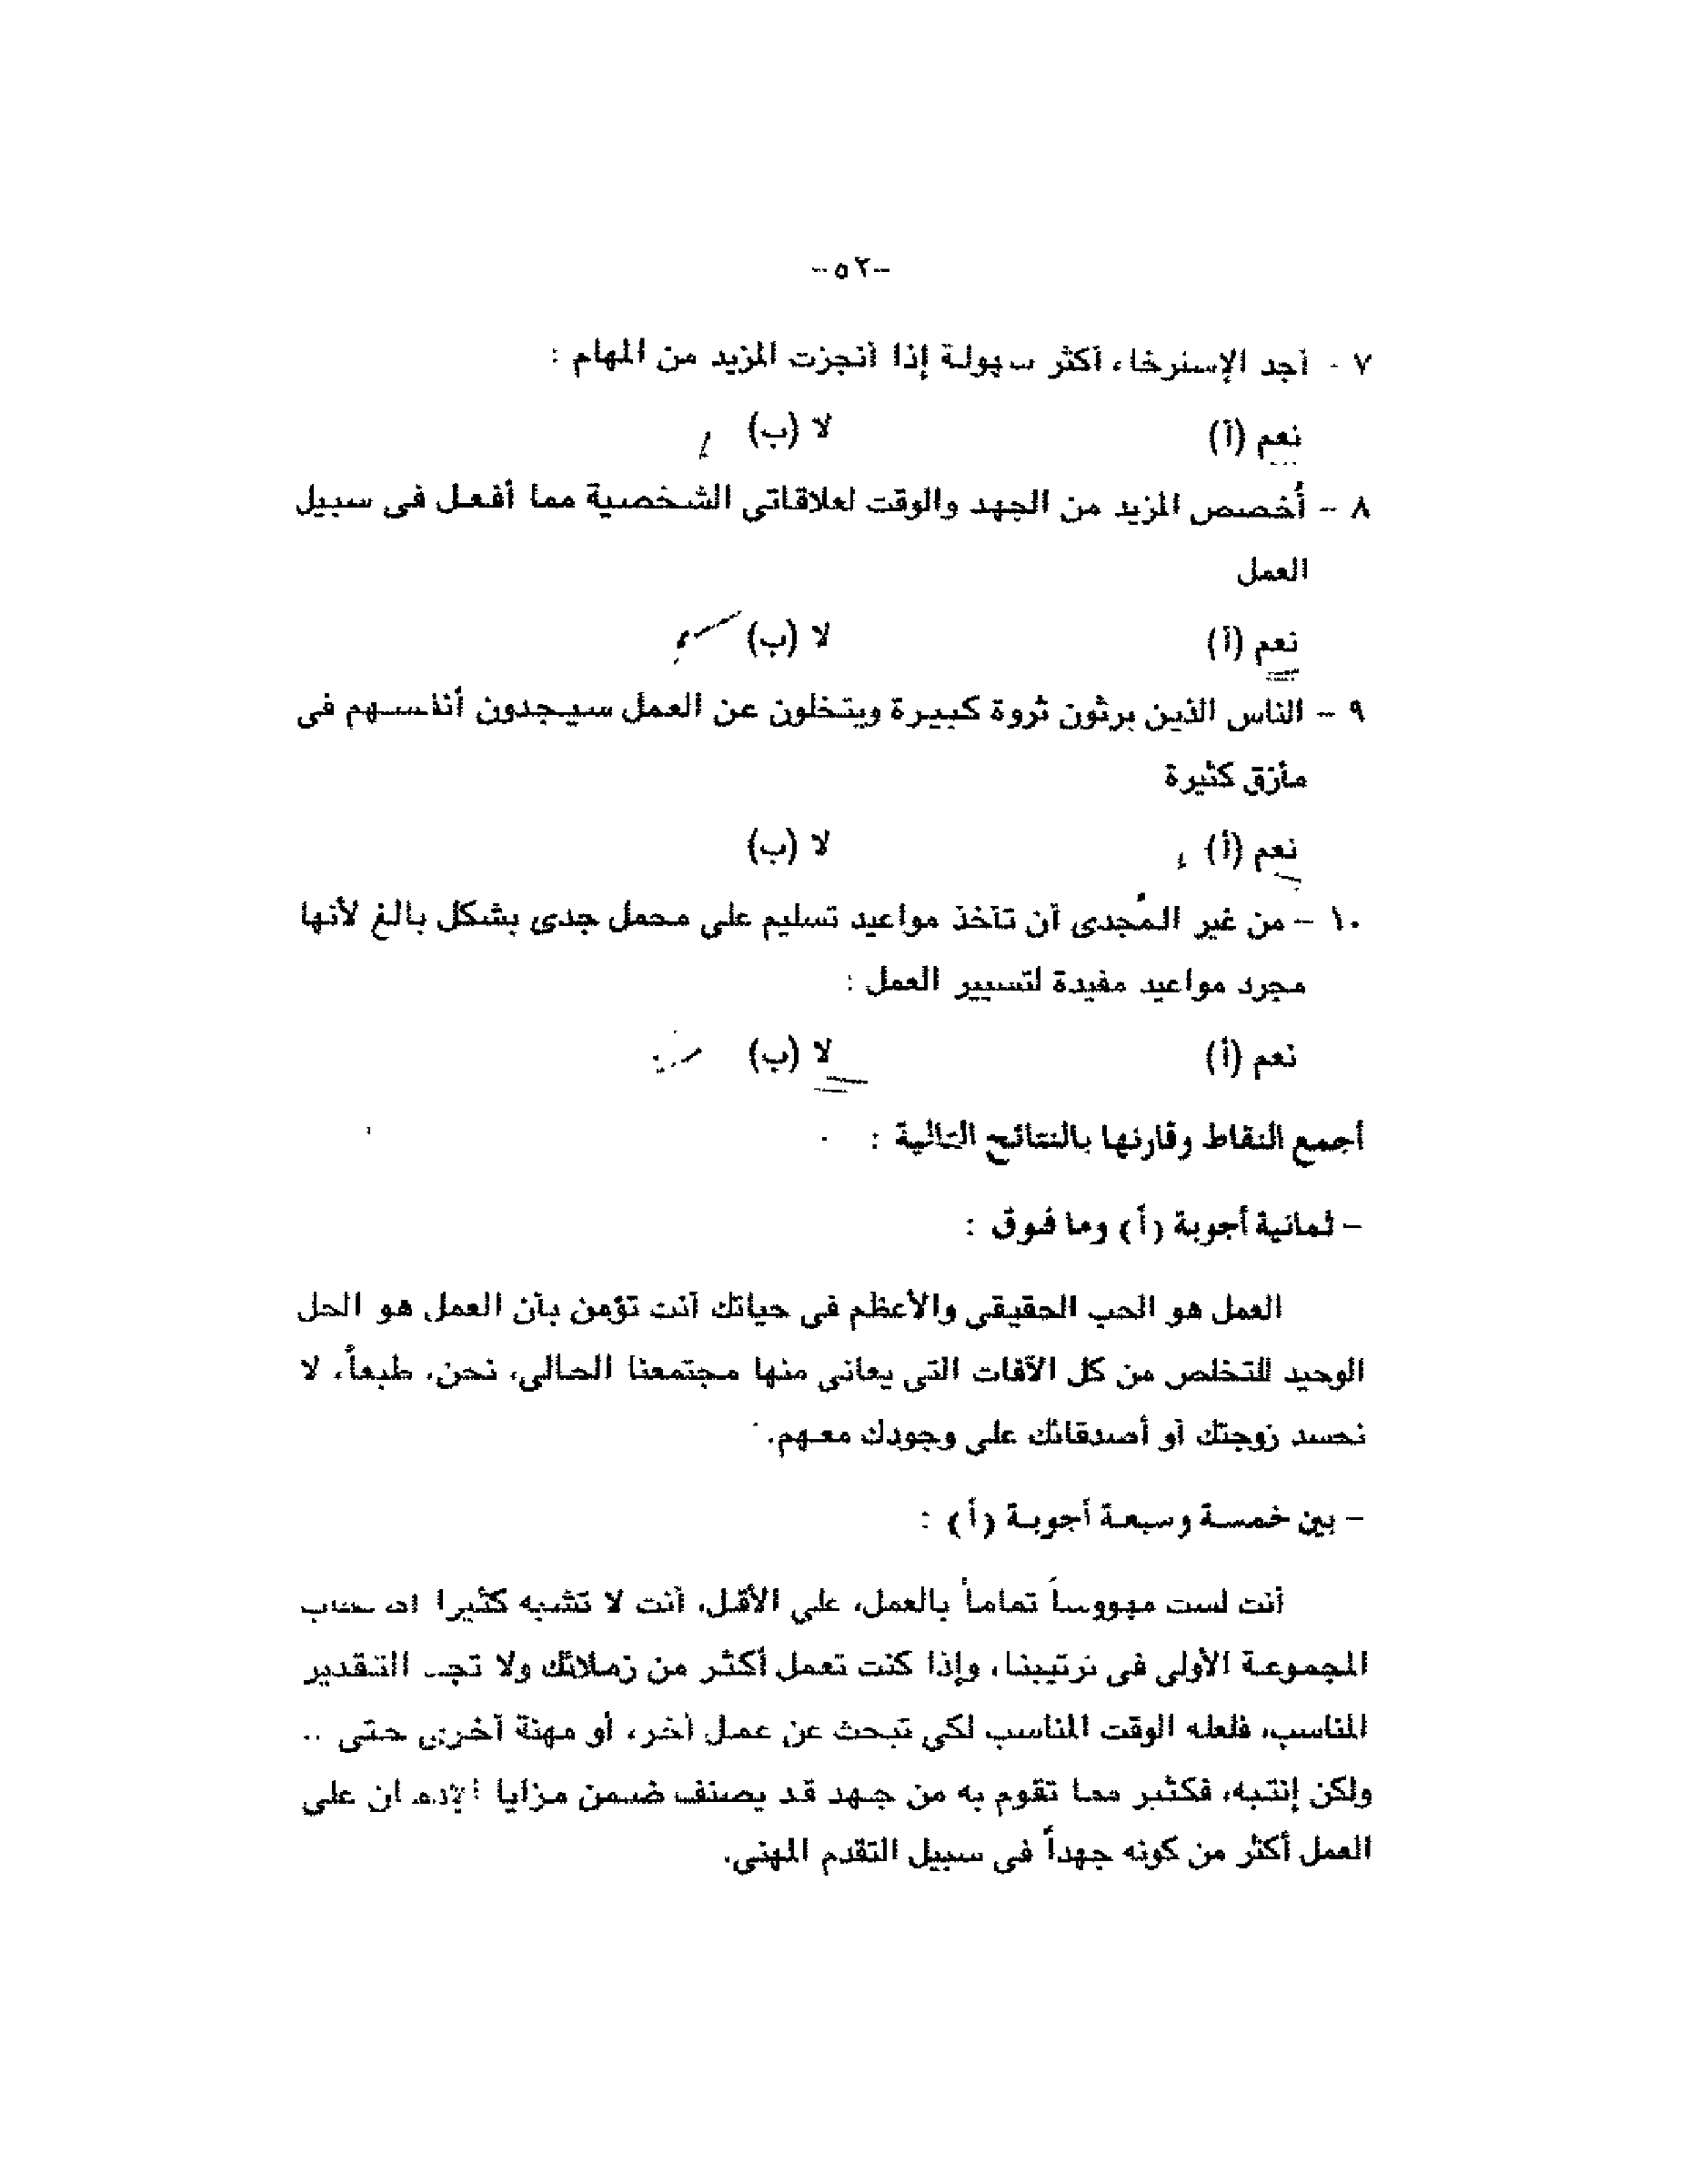 -٥٢-
٧ - أجد الإسترخاء أكثر سهولة إذا أنجزت المزيد من المهام :
نعم (أ) لا (ب)
٨ - أُخصص المزيد من الجهد والوقت لعلاقاتى الشخصية مما أفعل فى سبيل
العمل
نعم (أ) لا (ب)
٩ - الناس الذين يرثون ثروة كبيرة ويتخلون عن العمل سيجدون أنفسهم فى
مأزق كثيرة
نعم (أ) لا (ب)
١٠ - من غير المُجدى أن تأخذ مواعيد تسليم على محمل جدى بشكل بالغ لأنها
مجرد مواعيد مفيدة لتسيير العمل :
نعم (أ) لا (ب)
أجمع النقاط وقارنها بالنتائج التالية :
- ثمانية أجوبة (أ) وما فوق :
العمل هو الحب الحقيقى والأعظم فى حياتك أنت تؤمن بأن العمل هو الحل
الوحيد للتخلص من كل الآفات التى يعانى منها مجتمعنا الحالى، نحن، طبعاً، لا
نحسد زوجتك أو أصدقائك على وجودك معهم.
- بين خمسة وسبعة أجوبة (أ) :
أنت لست مهووساً تماماً بالعمل، على الأقل، أنت لا تشبه كثيرا
المجموعة الأولى فى ترتيبنا، وإذا كنت تعمل أكثر من زملائك ولا تجد التقدير
المناسب، فلعله الوقت المناسب لكى تبحث عن عمل آخر، أو مهنة آخرى حتى ..
ولكن إنتبه، فكثير مما تقوم به من جهد قد يصنف ضمن مزايا الإدمان على
العمل أكثر من كونه جهداً فى سبيل التقدم المهنى.